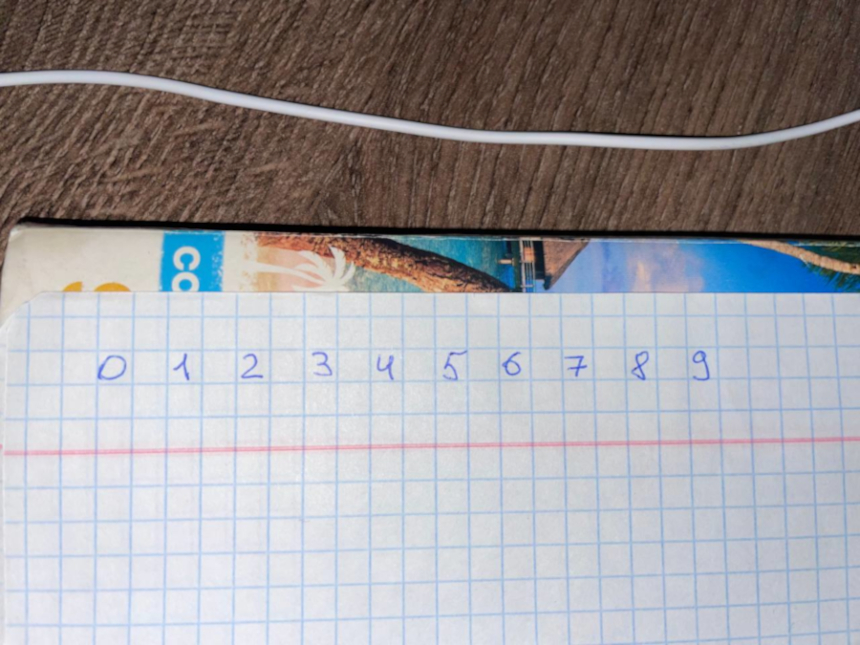 CO
0 1 2 3 4 5 6 7 8 9